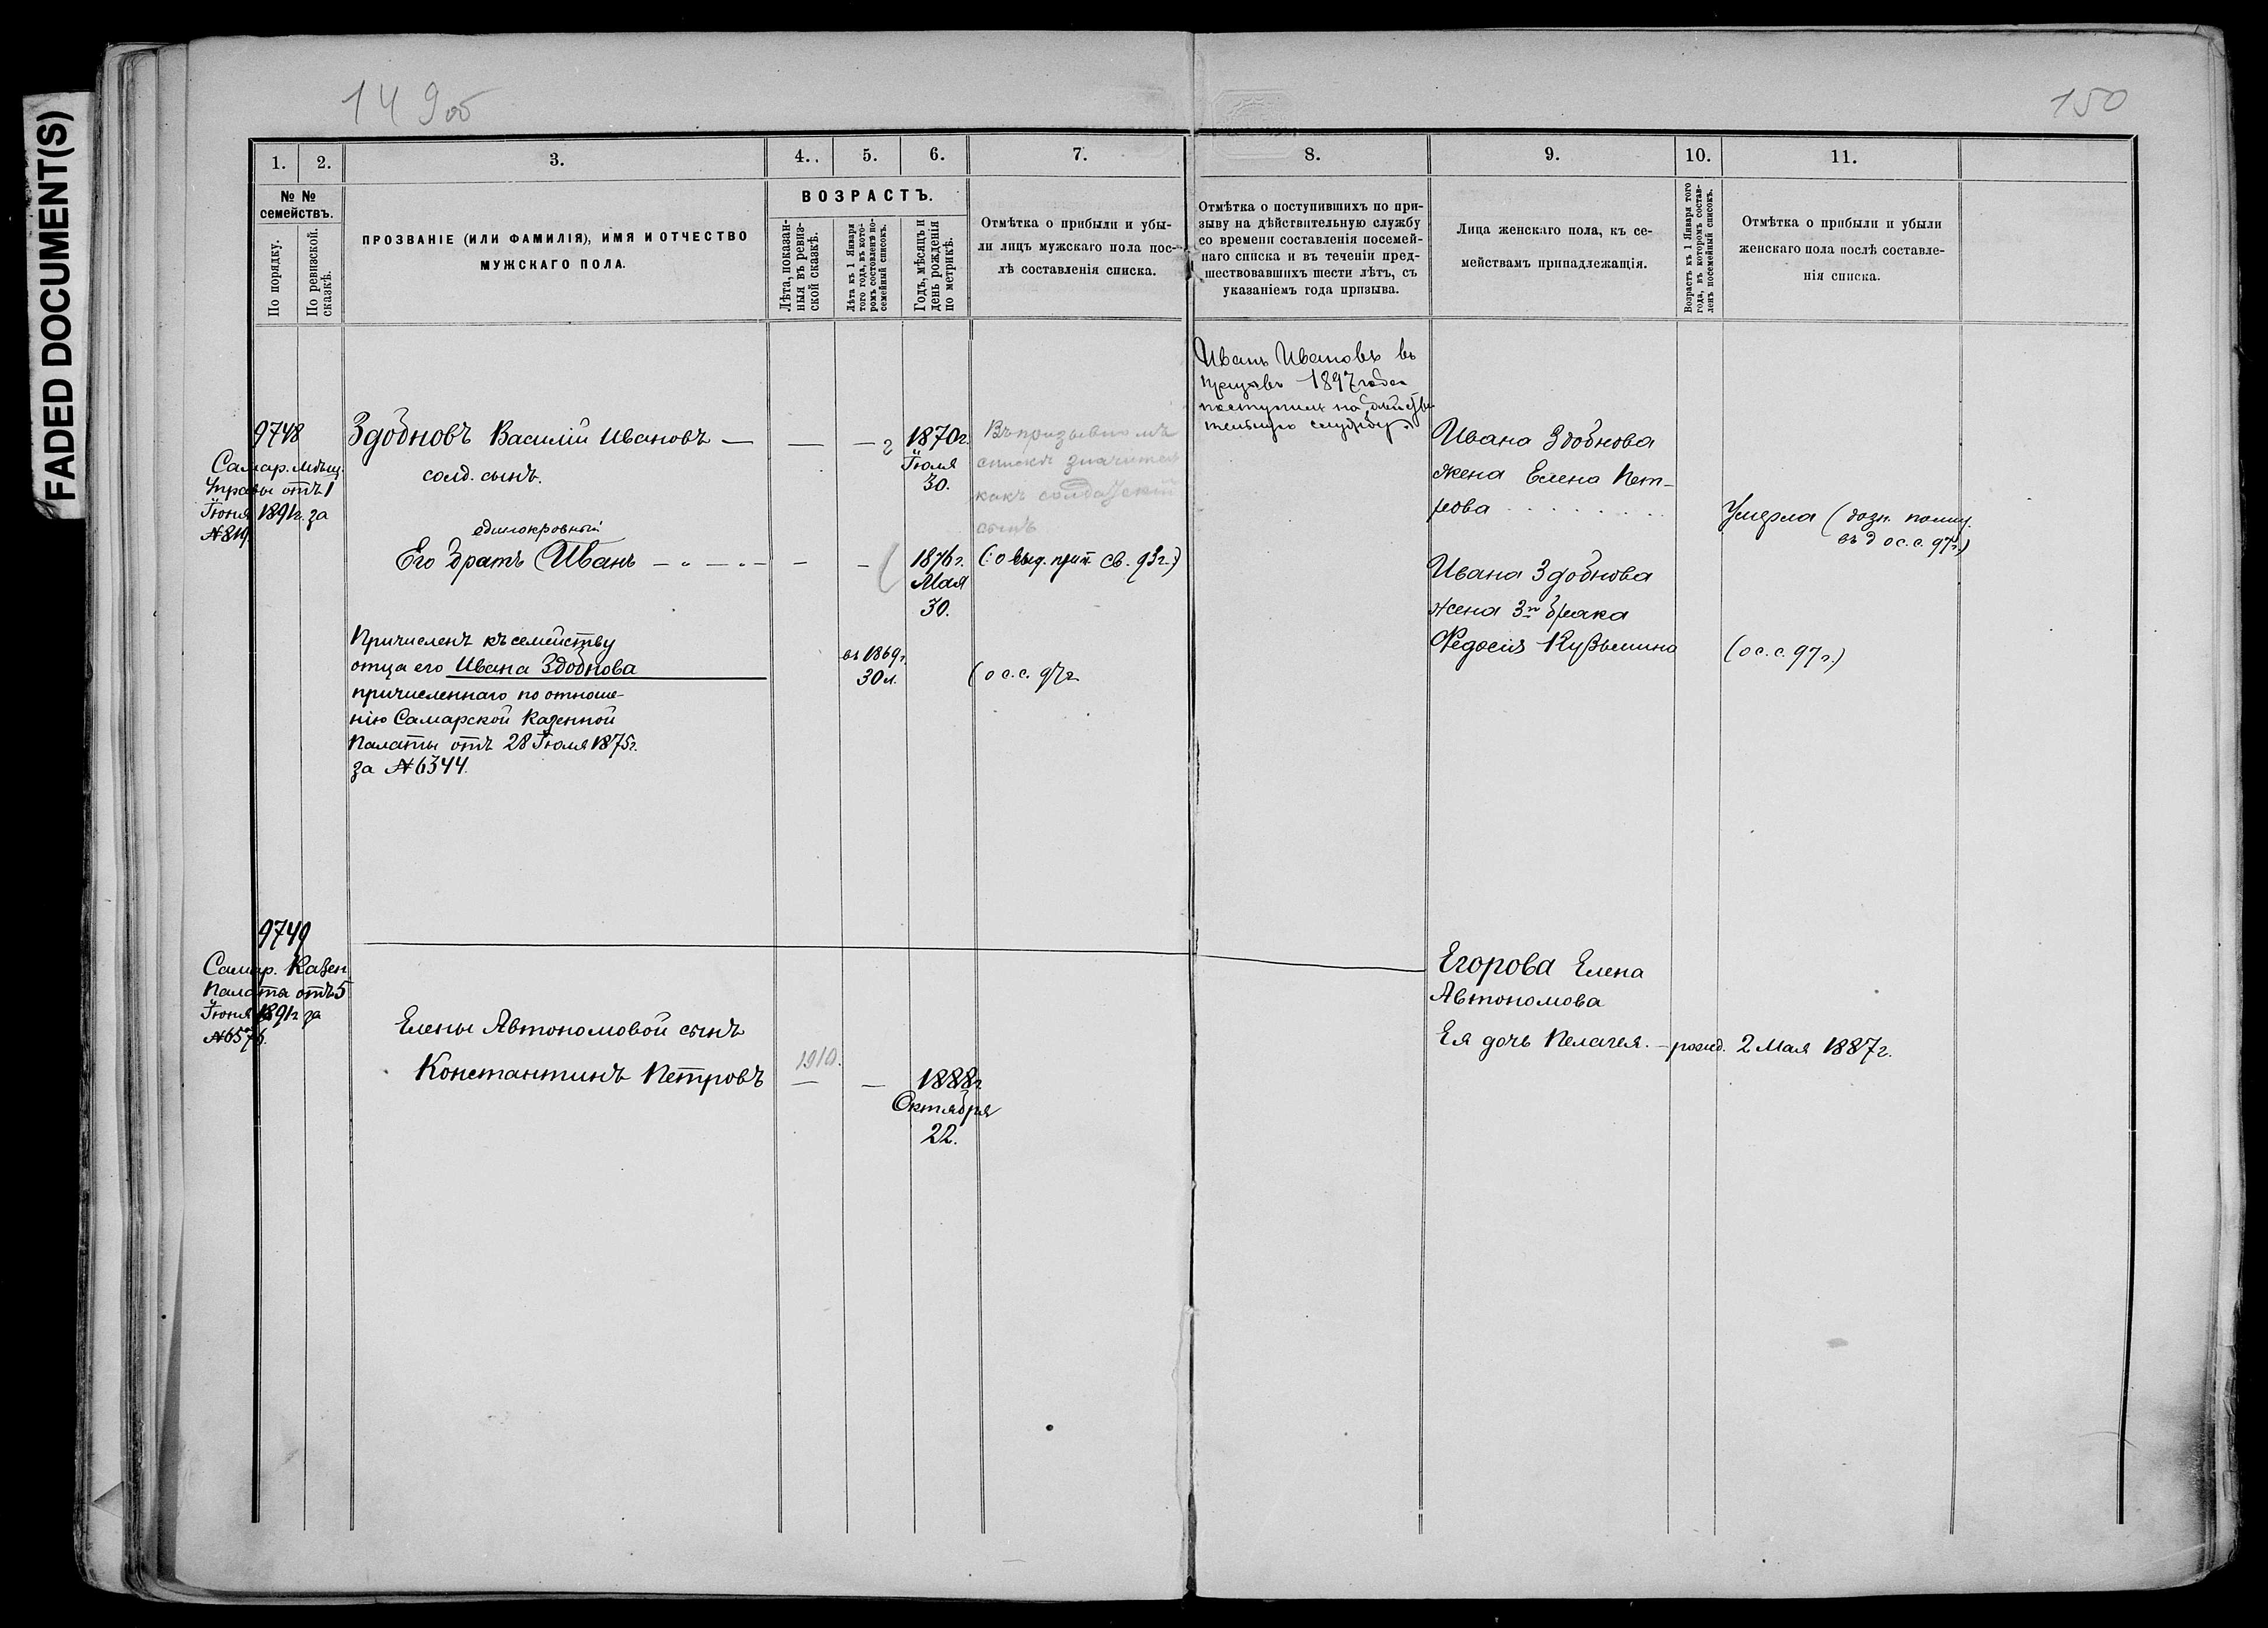 FADED DOCUMENT(S)
149об
150
1.
2.
3.
4.
5.
6.
7.
8.
9.
10.
11.
№ №
семействъ.
По порядку.
По ревизской
сказкѣ.
ПРОЗВАНІЕ (ИЛИ ФАМИЛІЯ), ИМЯ И ОТЧЕСТВО
МУЖСКАГО ПОЛА.
ВОЗРАСТЪ.
Лѣта, показан-
ныя въ ревиз-
ской сказкѣ.
Лѣта къ 1 Января
того года, въ кото-
ромъ составленъ по-
семейный списокъ.
Годъ, мѣсяцъ и
день рожденія
по метрикѣ.
Отмѣтка о прибыли и убы-
ли лицъ мужскаго пола пос-
лѣ составленія списка.
Отмѣтка о поступившихъ по при-
зыву на дѣйствительную службу
со времени составленія посемей-
наго списка и въ теченіи пред-
шествовавшихъ шести лѣтъ, съ
указаніемъ года призыва.
Лица женскаго пола, къ се-
мействамъ принадлежащія.
Возрастъ къ 1 Января того
года, въ которомъ состав-
ленъ посемейный списокъ.
Отмѣтка о прибыли и убыли
женскаго пола послѣ составле-
нія списка.
9748
Самар. Мѣщ.
Управы отъ 1
Іюня 1891г. за
№819.
Здобновъ Василій Ивановъ —
солд. сынъ.
единокровный
Его братъ Иванъ
1870г.
Іюля
30.
Въ призывномъ
спискѣ значится
какъ солдатскій
сынъ
1876г.
Мая
30.
Причисленъ къ семейству
отца его Ивана Здобнова
причисленнаго по отноше-
нію Самарской Казенной
Палаты отъ 28 Іюля 1875г.
за №6344.
въ 1869г.
30л.
(о с.с. 97г.
Иванъ Ивановъ въ
призывъ 1897 года
поступилъ на действи-
тельную службу.
Ивана Здобнова
жена Елена Пет-
рова
Умерла (дозн. полиц.
въ д о с.с. 97г.)
Ивана Здобнова
жена 3го брака
Федосія Кузьмина
(о с.с. 97г.)
9749
Самар. Казен.
Палата отъ 5
Іюня 1891г за
№6576.
Елены Автономовой сынъ
Константинъ Петровъ
1910.
1888г
Октября
22.
Егорова Елена
Автономова
Ея дочь Пелагея. — рожд. 2 Мая 1887г.